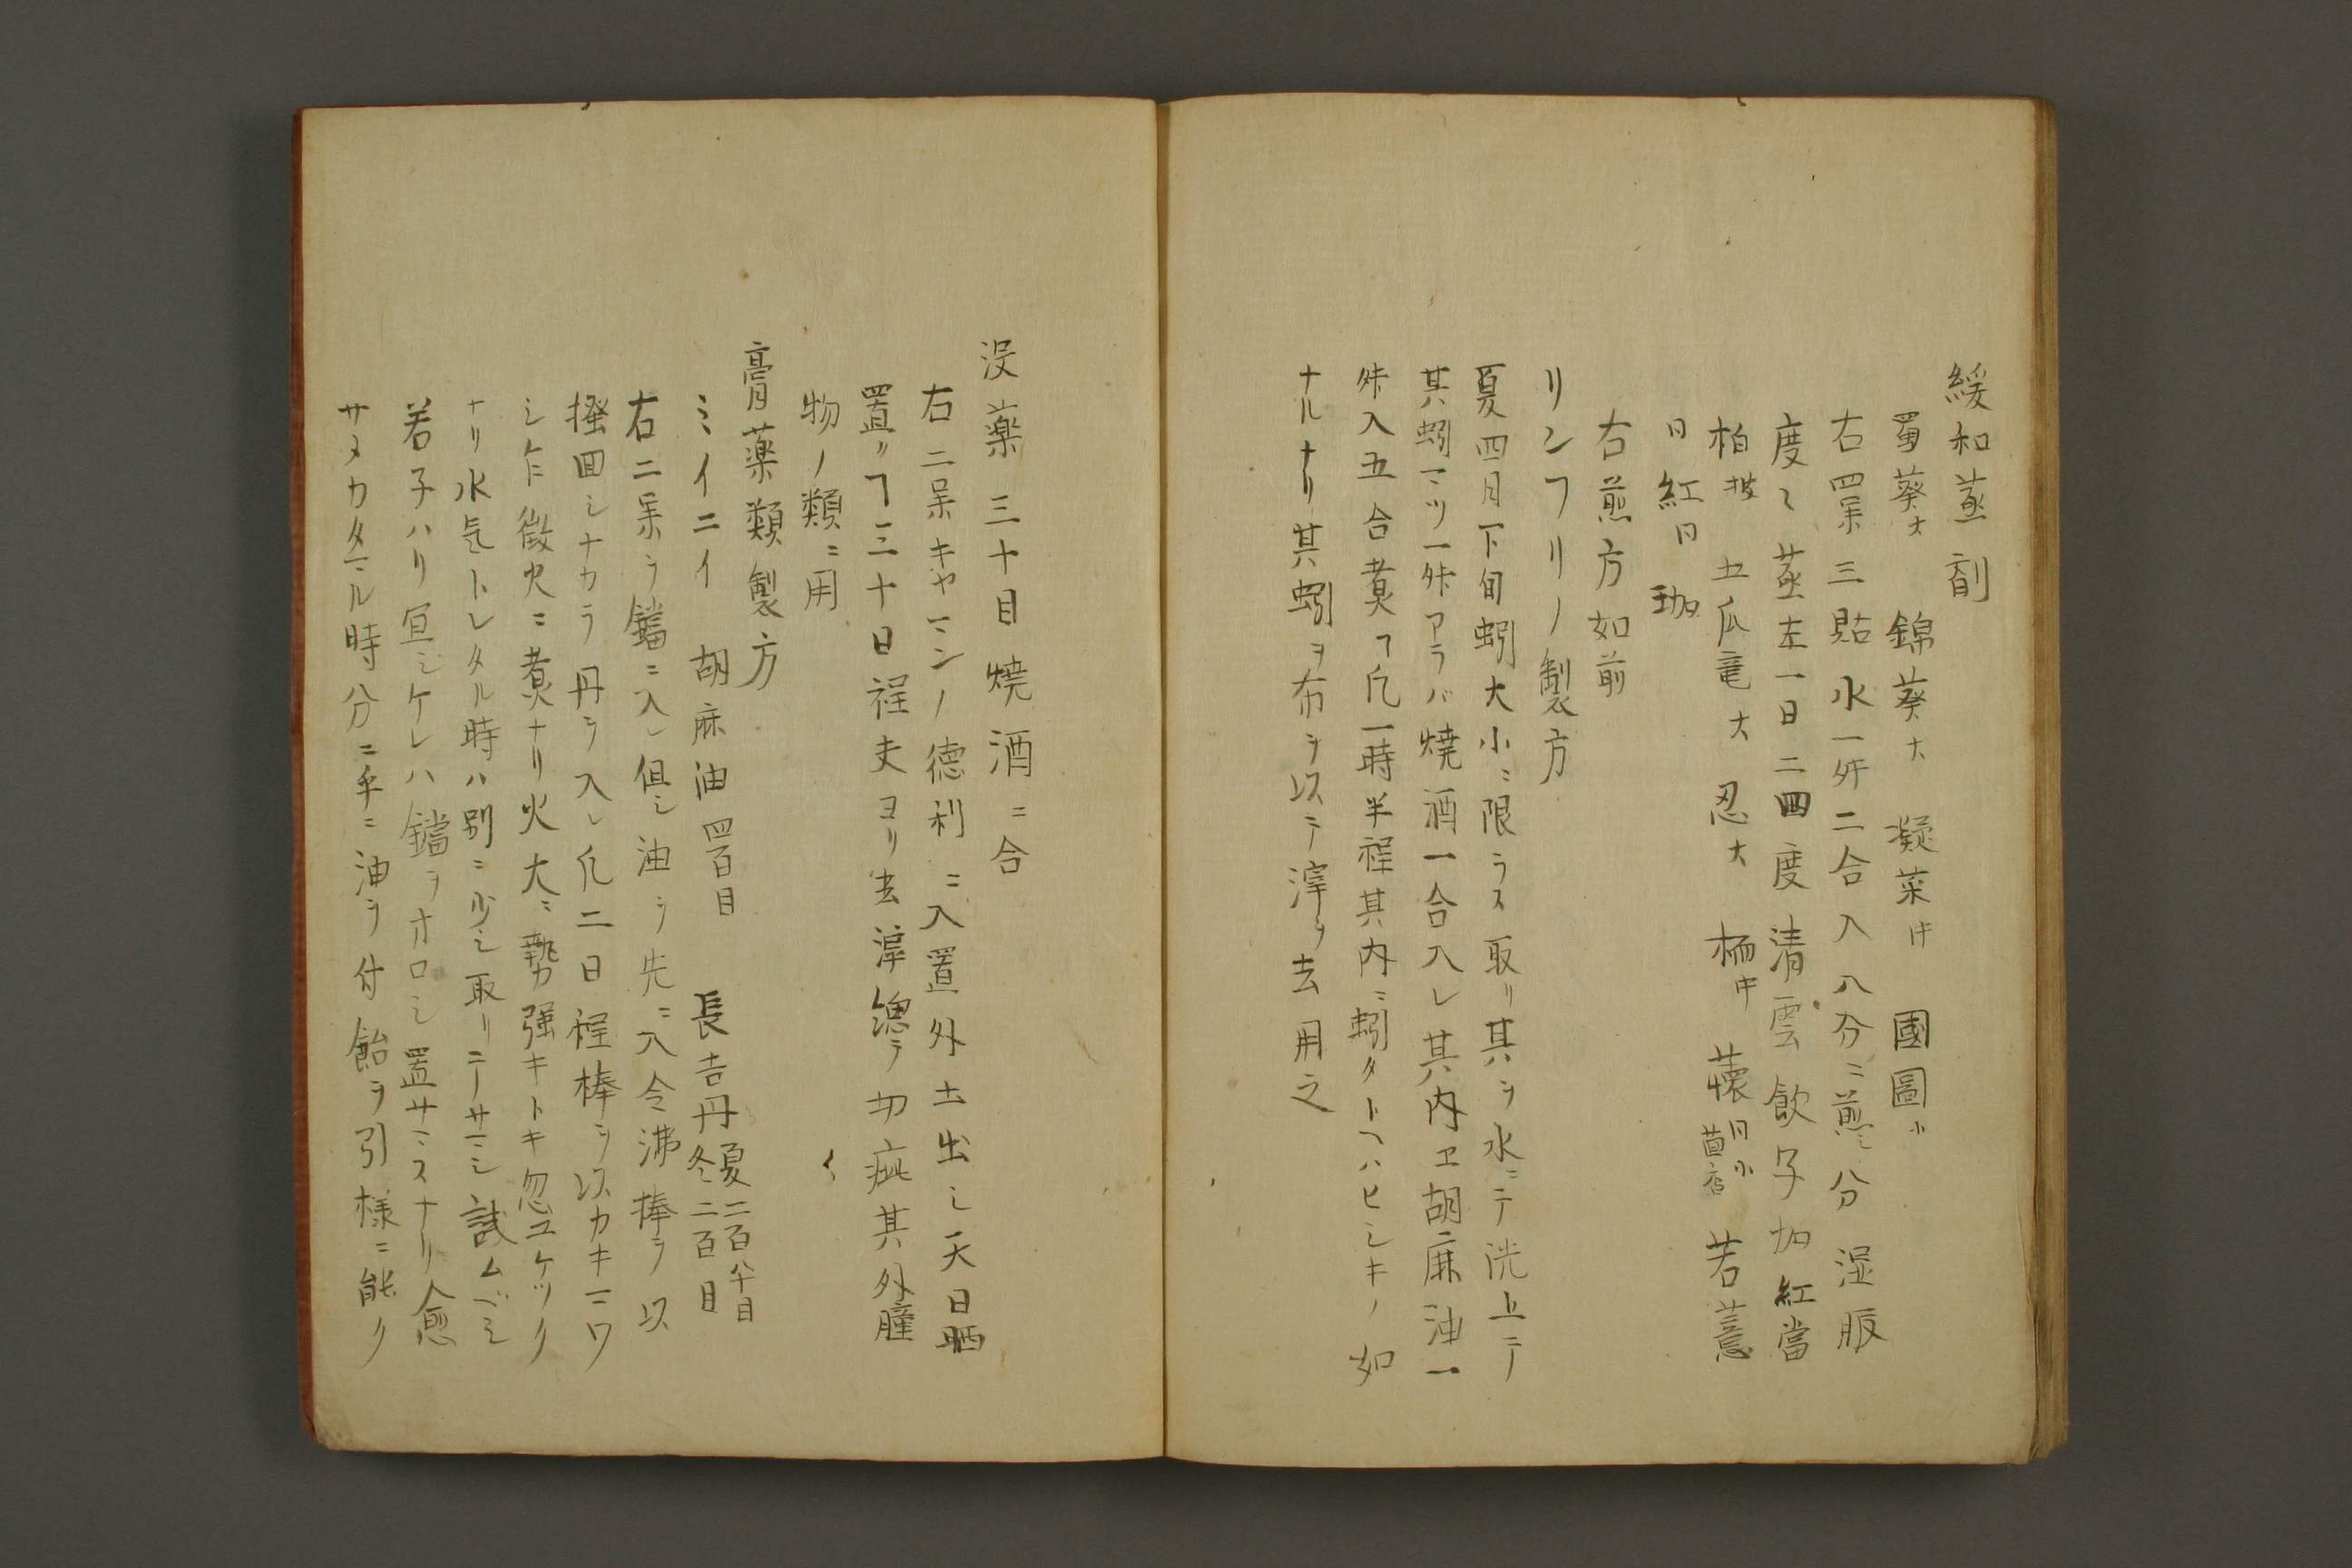 緩和蒸剤
蜀葵大 錦葵大 凝菜中 國圖小
右四味三貼水一舛二合入八分ニ煎シ分温服
度〻蒸左一日二四度清雲飲子加紅當
柏 五瓜竜大 忍大 桶中 蘹同小 茴香 若薏
同紅同
右煎方如前
リンフリノ製方
夏四月下旬蚓大小ニ限ラス取リ其ヲ水ニテ洗上ニテ
其蚓一ツ一舛アラバ焼酒一合入レ其内ヱ胡麻油一
舛入五合煑ヿ凡一時半程其内ニ蚓タトヘハヒシキノ如
ナルナリ其蚓ヲ布ヲ以テ滓ヲ去用之
没薬 三十目 焼酒二合
右二味キヤマンノ徳利ニ入置外土出シ天日晒
置リヿ三十日程夫ヨリ去滓総テ切疵其外腫
物ノ類ニ用
膏薬類製方
ミイニイ 胡麻油四百目 長吉丹夏二百八十目冬二百目
右二味ヲ鐺ニ入レ但シ油ヲ先ニ入令沸棒ヲ以
掻回シナカラ丹ヲ入レ凡二日程棒ヲ以カキマワ
シ乍微火ニ煮ナリ火大ニ勢強キトキ忽ユケツク
ナリ水気トレタル時ハ別ニ少シ取リニーサマシ試ムベシ
若子ハリ宜シケレハ鐺ヲオロシ置サマスナリ愈
サメカタマル時分ニ手ニ油ヲ付飴ヲ引様ニ能ク